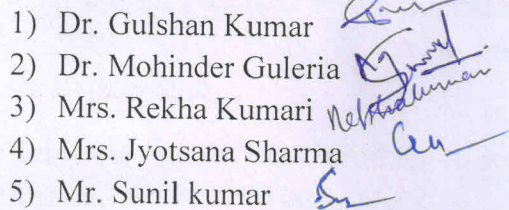 1) Dr. Gulshan Kumar
2) Dr. Mohinder Guleria
3) Mrs. Rekha Kumari
4) Mrs. Jyotsana Sharma
5) Mr. Sunil kumar